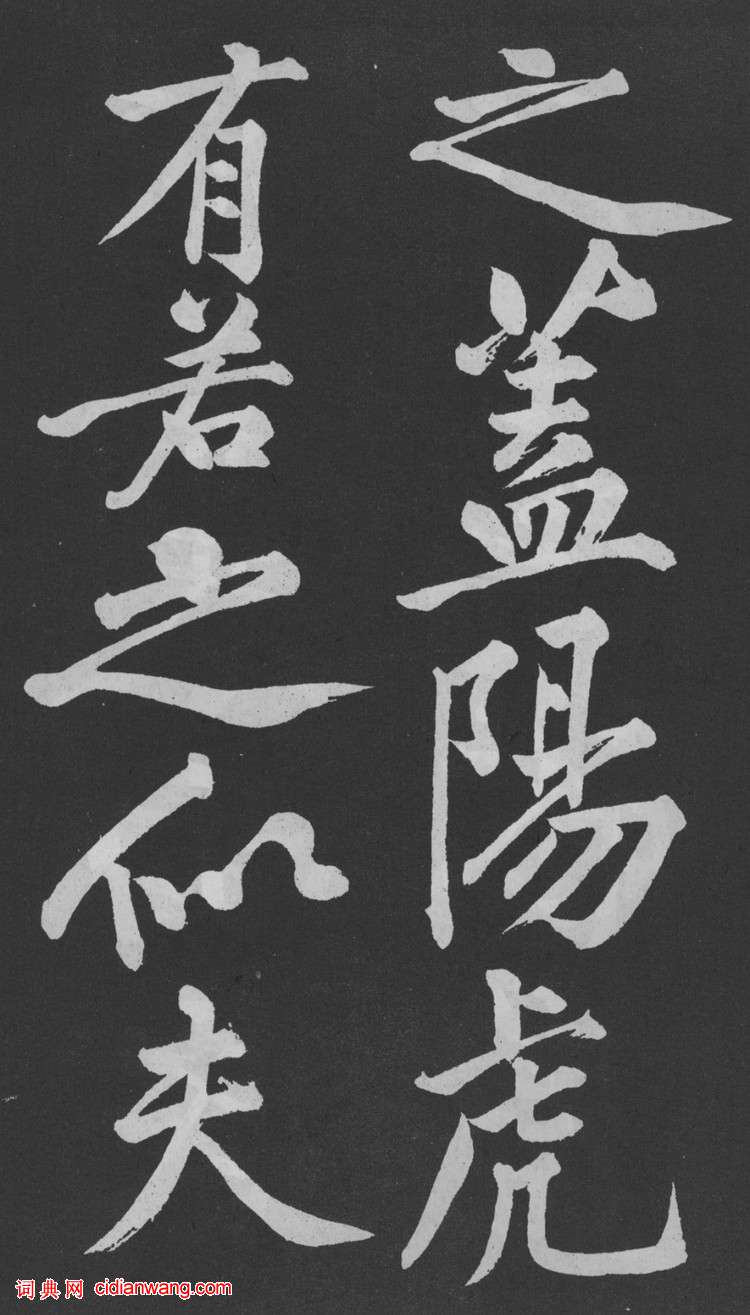 之蓋陽虎
有若之似夫
词典网 cidianwang.com